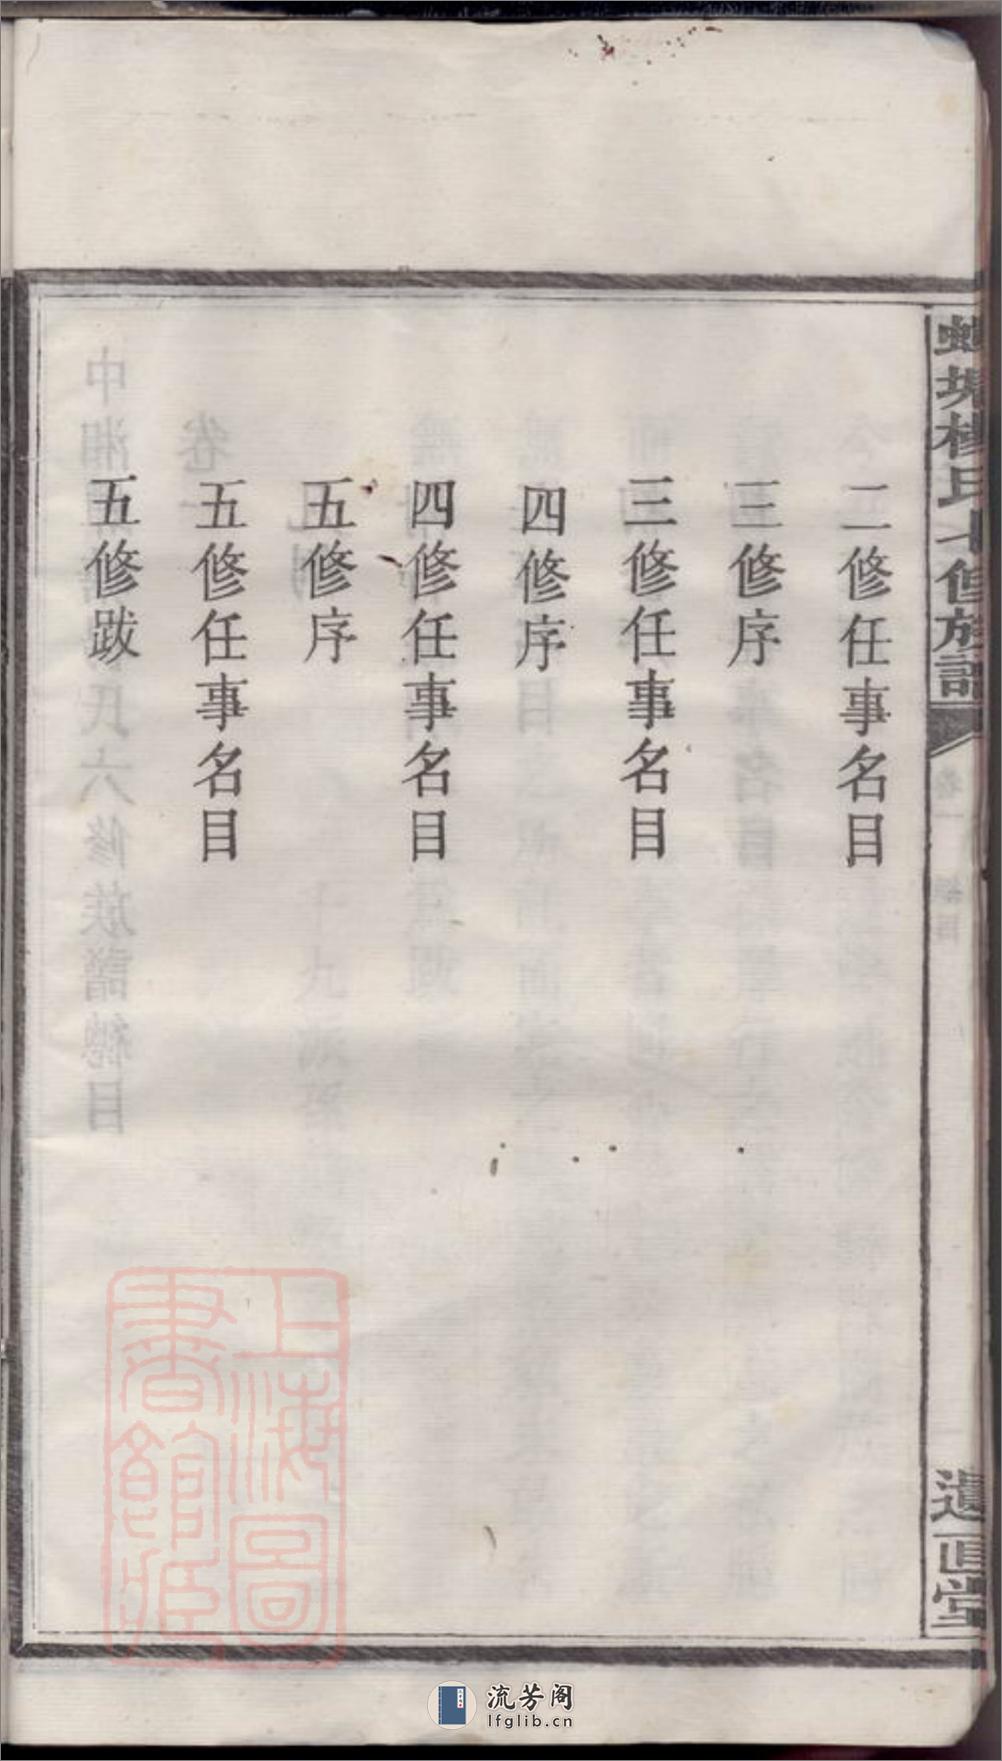 二修任事名目
三修序
三修任事名目
四修序
四修任事名目
五修序
五修任事名目
五修跋
楊氏七修族譜
卷一
遺直堂
上海圖書館藏
流芳阁
lfglib.cn